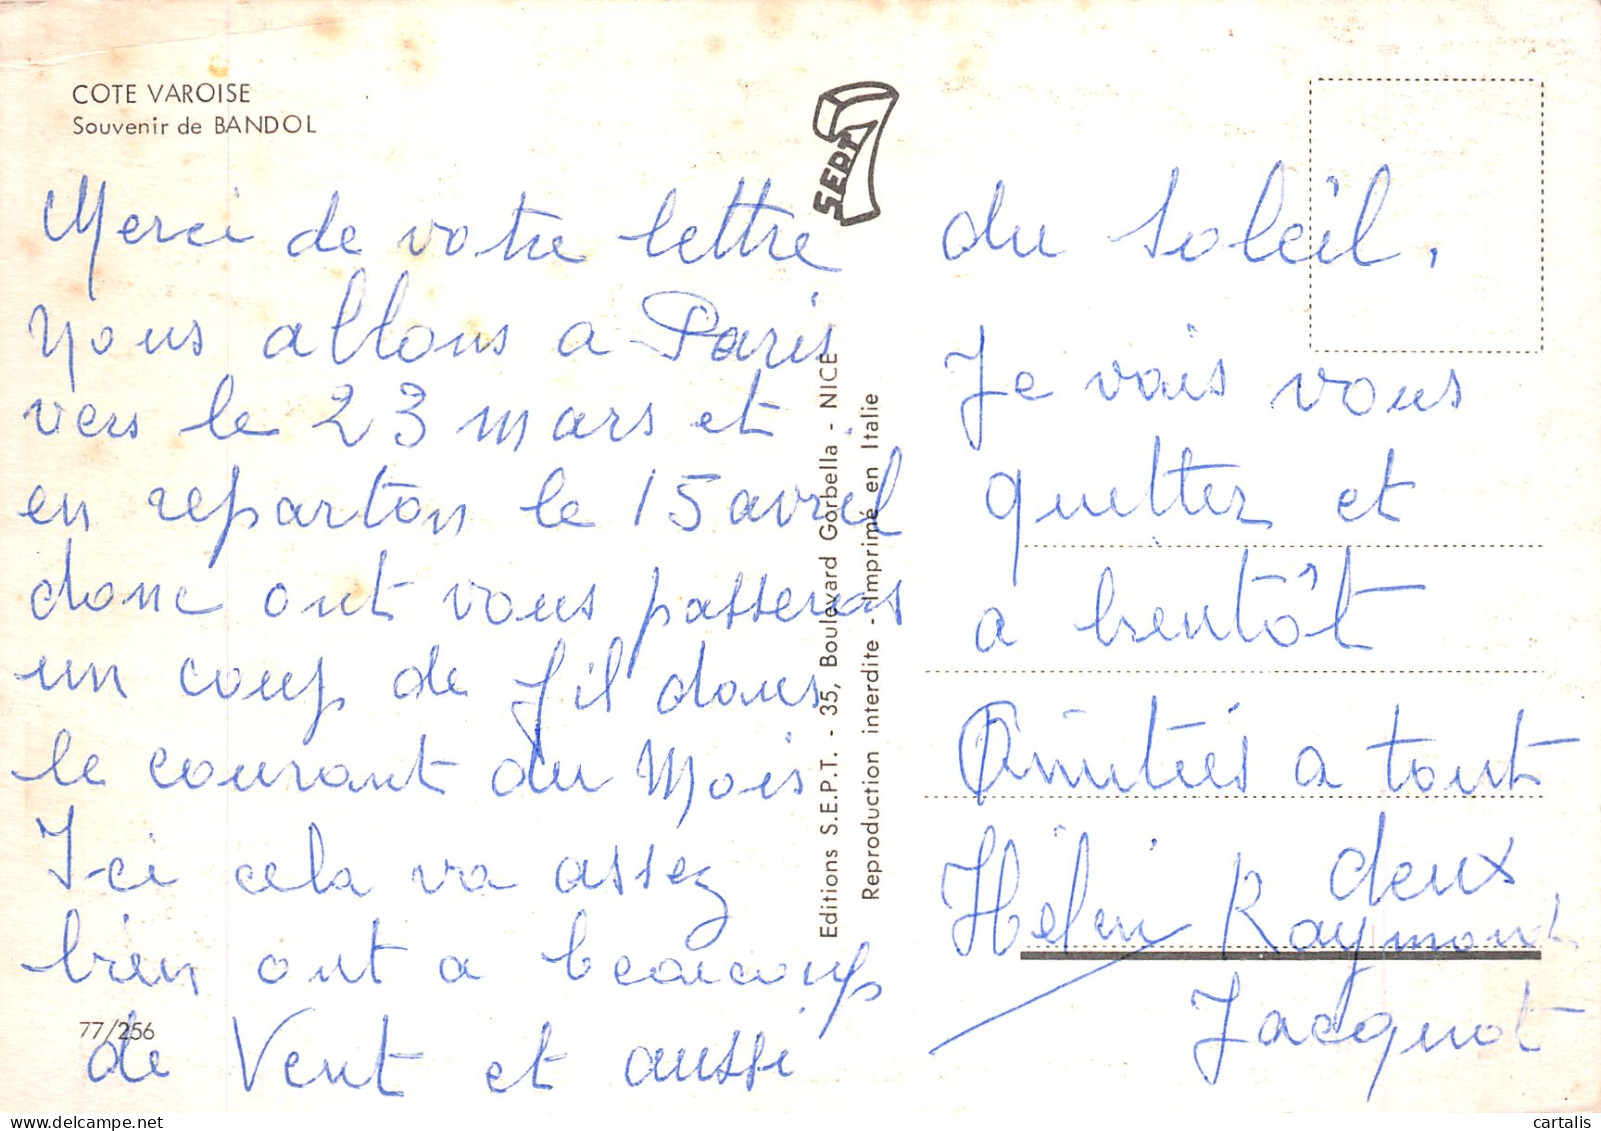 COTE VAROISE
Souvenir de BANDOL
SEPT
Merci de votre lettre
Nous allons a Paris
vers le 23 mars et
en reparton le 15 avril
donc ont vous passeras
un coup de fil dans
le courant du Mois
Ici cela va assez
bien ont a beaucoup
de Vent et aussi
77/256
Editions S.E.P.T. - 35, Boulevard Gorbella - NICE
Reproduction interdite - Imprimé en Italie
du soleil.
Je vais vous
quitter et
a bientôt
Amitiés a tout
deux
Hélni Raymond
Jacquot
cartalis